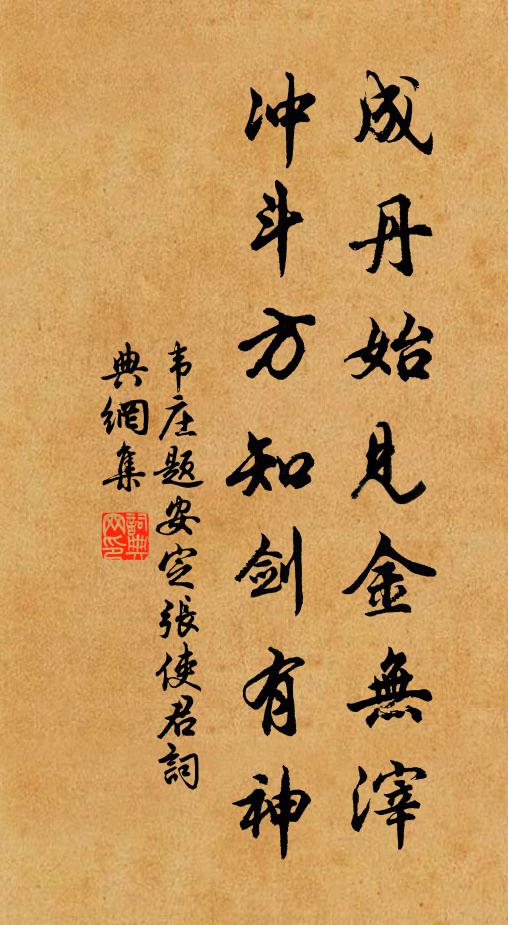 成丹始見金無滓
冲斗方知剑有神
韦庄题安定張使君詞
典網集
詞典
网印